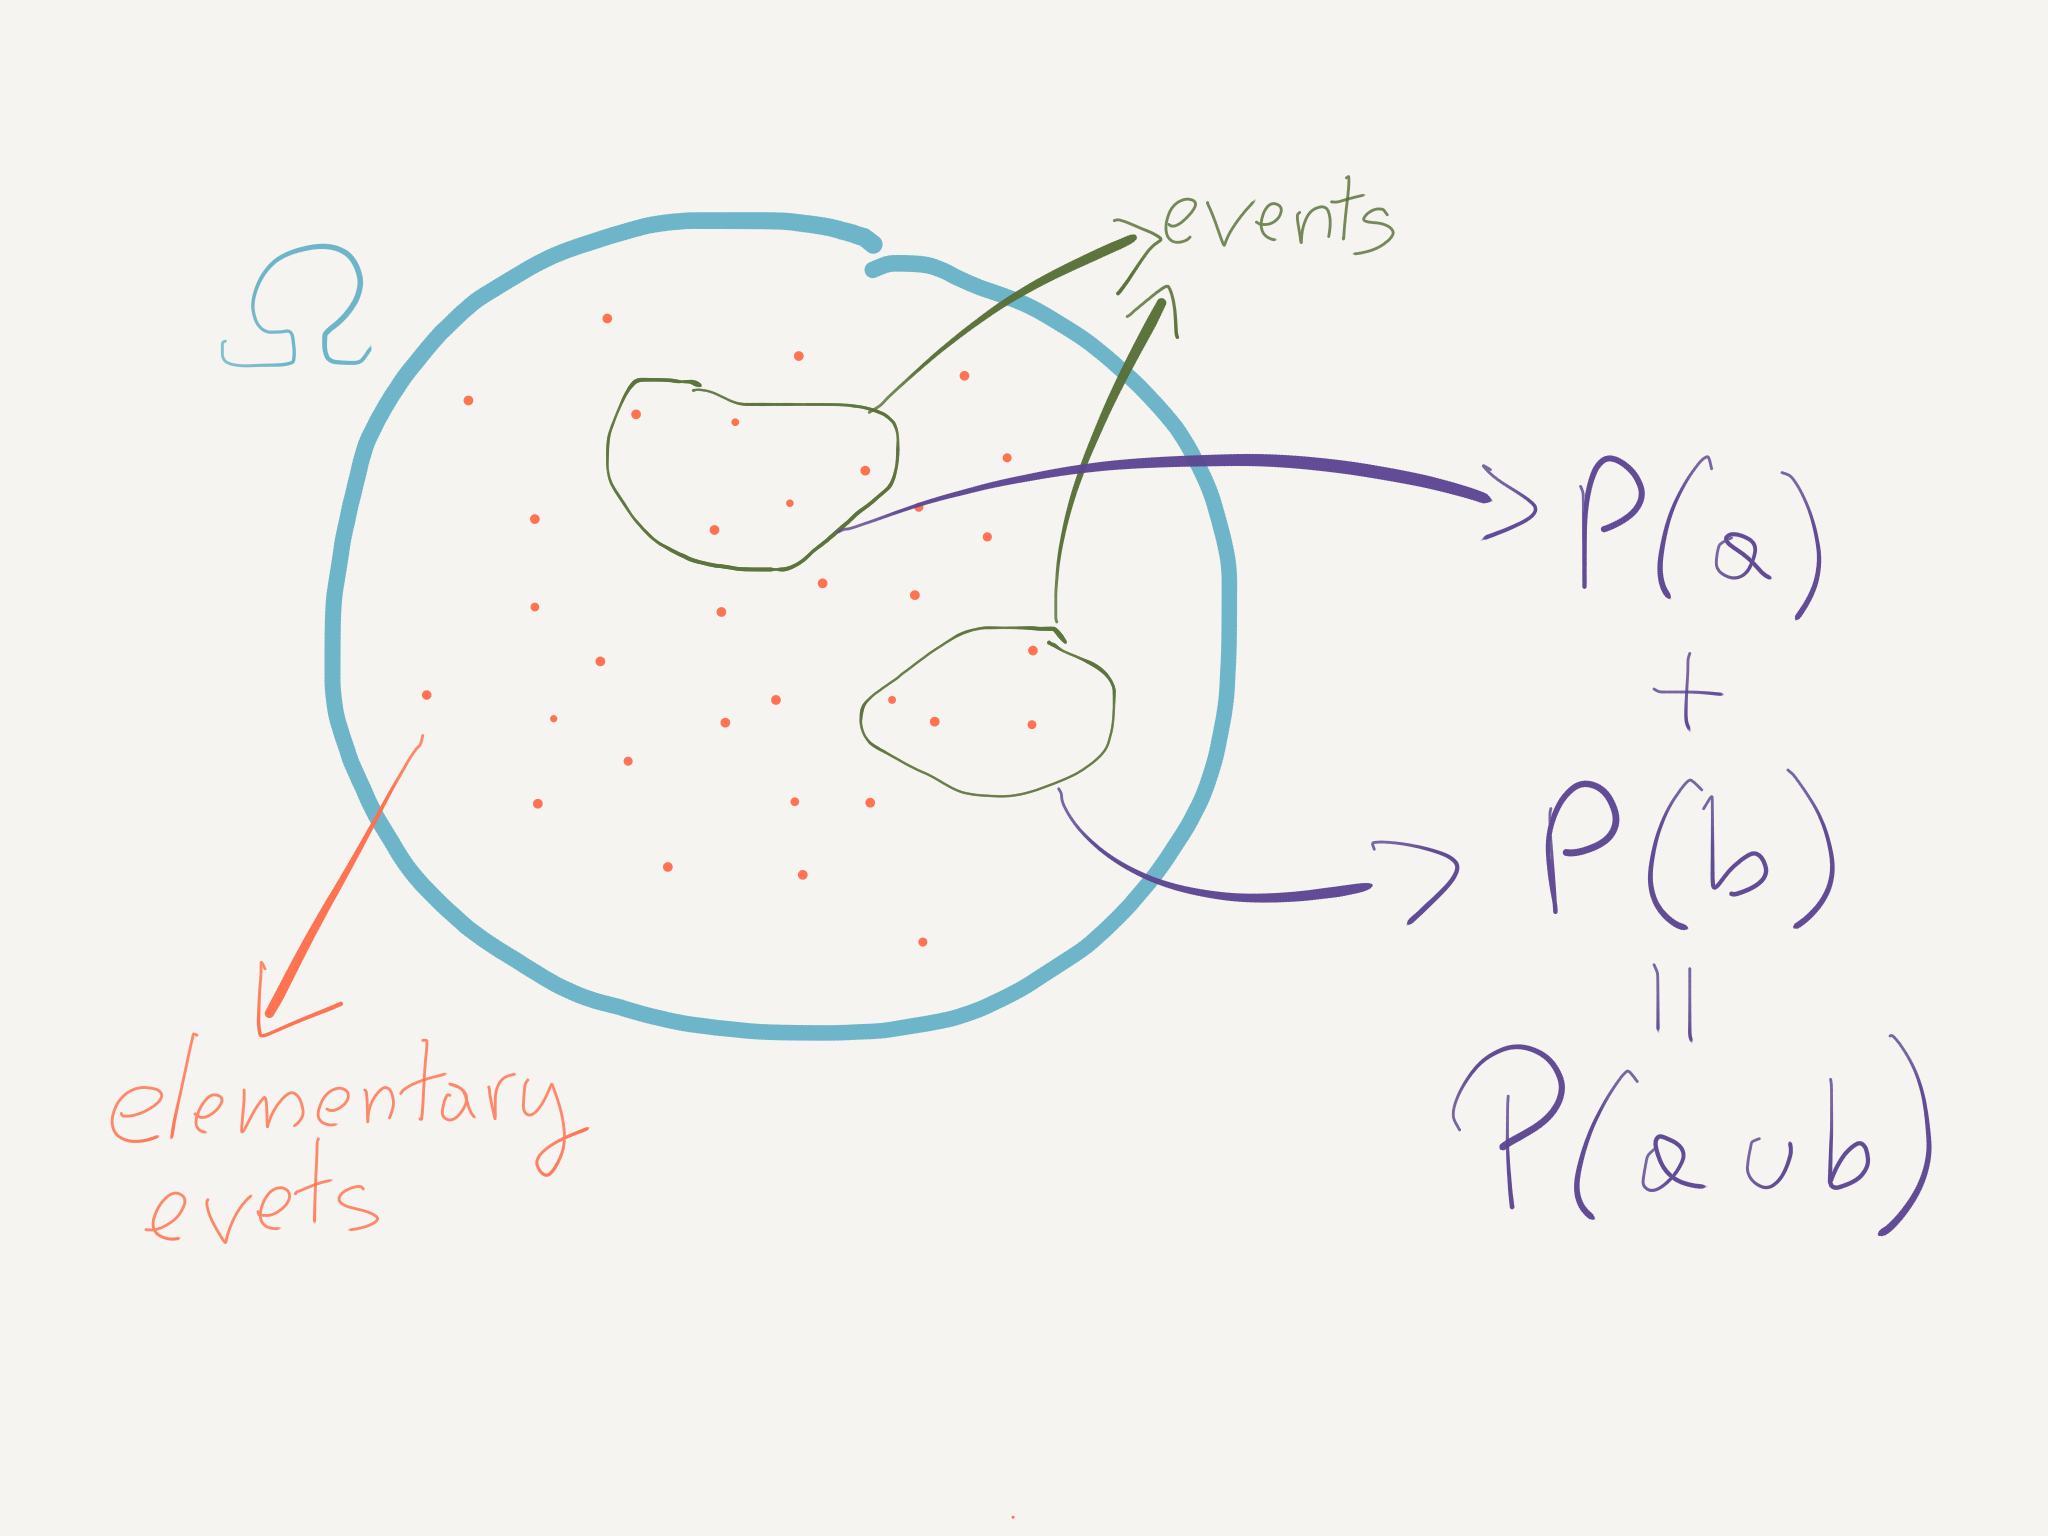 events
Ω
P(a)
+
P(b)
=
P(a ∪ b)
elementary
evets